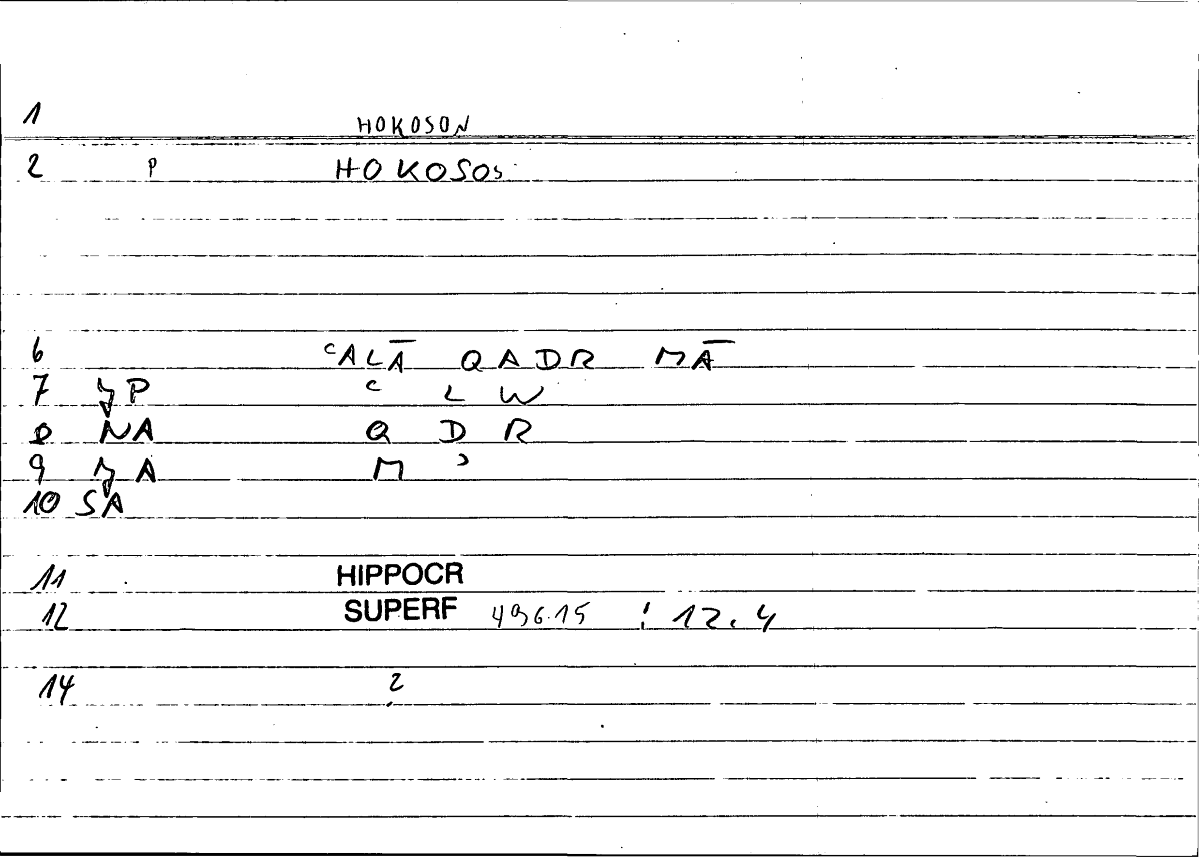 1 HOKOSON
2 P HOKOSOS
6 ʿALĀ QADR MĀ
7 P ʿ L W
8 NA Q D R
9 A M ʾ
10 SA
11 HIPPOCR
12 SUPERF 496.15 : 12.4
14 2